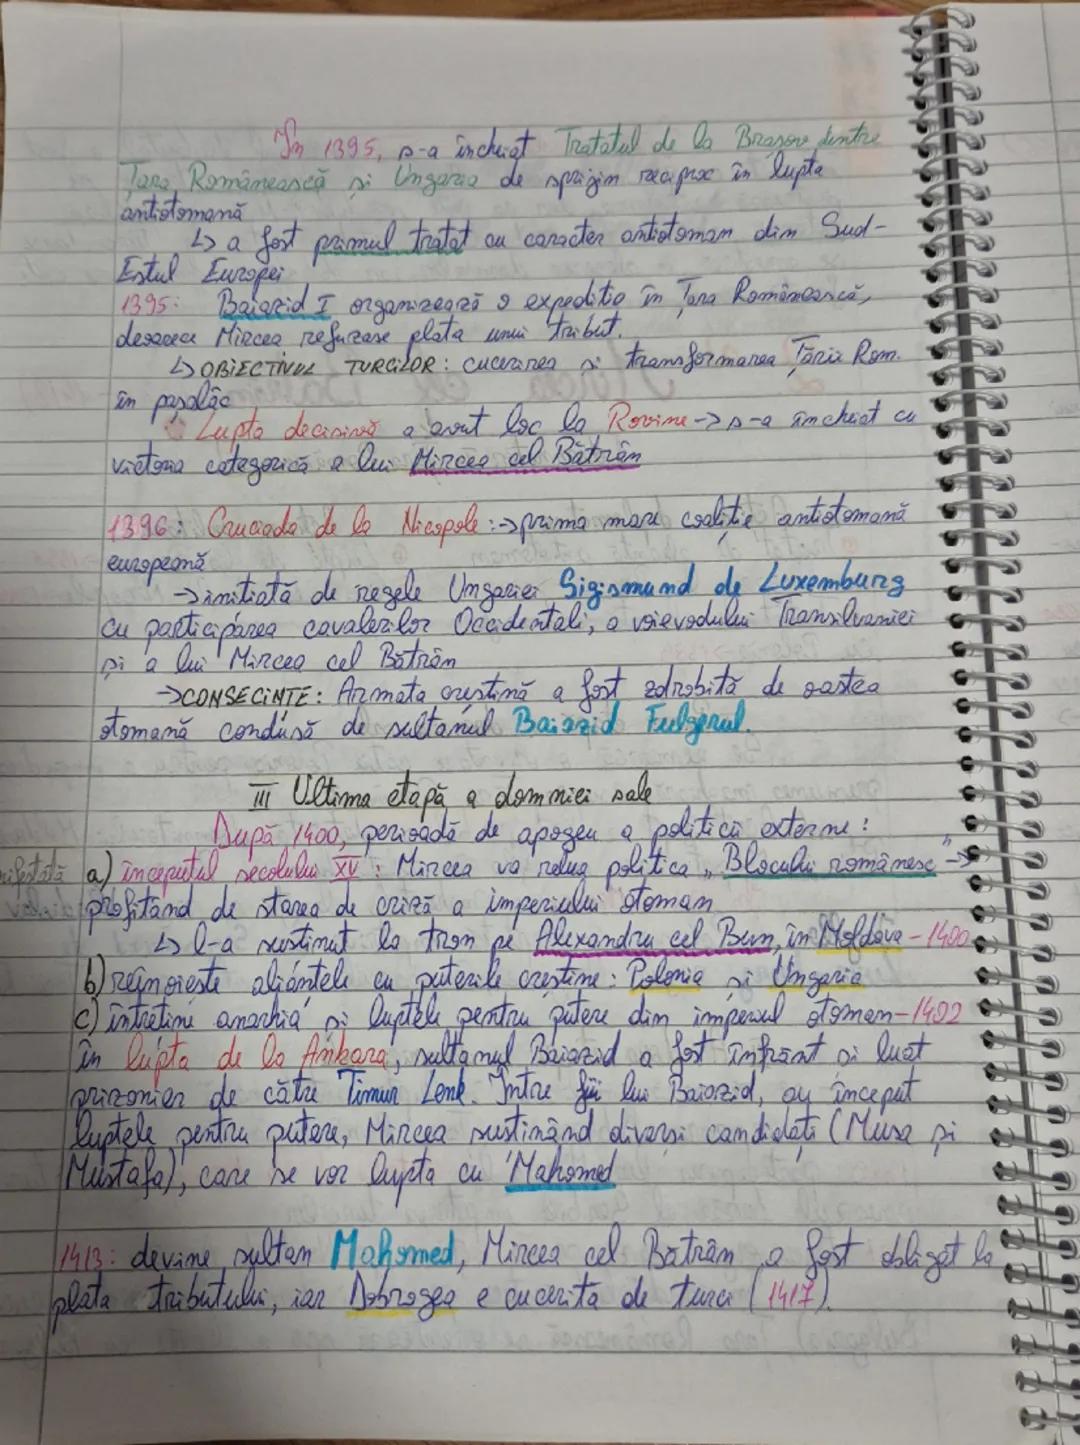 În 1395, s-a încheiat Tratatul de la Brașov dintre
Țara Românească și Ungaria de sprijin reciproc în lupta
antiotomană
↳ a fost primul tratat cu caracter antiotoman din Sud-
Estul Europei
1395: Baiazid I organizează o expediție în Țara Românească,
deoarece Mircea refuzase plata unui tribut.
↳ OBIECTIVUL TURCILOR: cucerirea și transformarea Țării Rom.
în pașalâc
Lupta decisivă a avut loc la Rovine → s-a încheiat cu
victoria categorică a lui Mircea cel Bătrân
1396: Cruciada de la Nicopole: → prima mare coaliție antiotomană
europeană
→ inițiată de regele Ungariei Sigismund de Luxemburg
cu participarea cavalerilor Occidentali, a voievodului Transilvaniei
și a lui Mircea cel Bătrân
→ CONSECINȚE: Armata creștină a fost zdrobită de oastea
otomană condusă de sultanul Baiazid Fulgerul.
III Ultima etapă a domniei sale
După 1400, perioadă de apogeu a politicii externe:
a) începutul secolului XV: Mircea va relua politica „Blocului românesc" →
profitând de starea de criză a imperiului otoman
↳ l-a susținut la tron pe Alexandru cel Bun, în Moldova - 1400
b) reînoiește alianțele cu puterile creștine: Polonia și Ungaria
c) întreține anarhia și luptele pentru putere din imperiul otoman - 1402
în lupta de la Ankara, sultanul Baiazid a fost înfrânt și luat
prizonier de către Timur Lenk. Între fii lui Baiazid, au început
luptele pentru putere, Mircea susținând diverși candidați (Musa și
Mustafa), care se vor lupta cu Mahomed
1413: devine sultan Mahomed, Mircea cel Bătrân a fost obligat la
plata tributului, iar Dobrogea e cucerită de turci (1417).